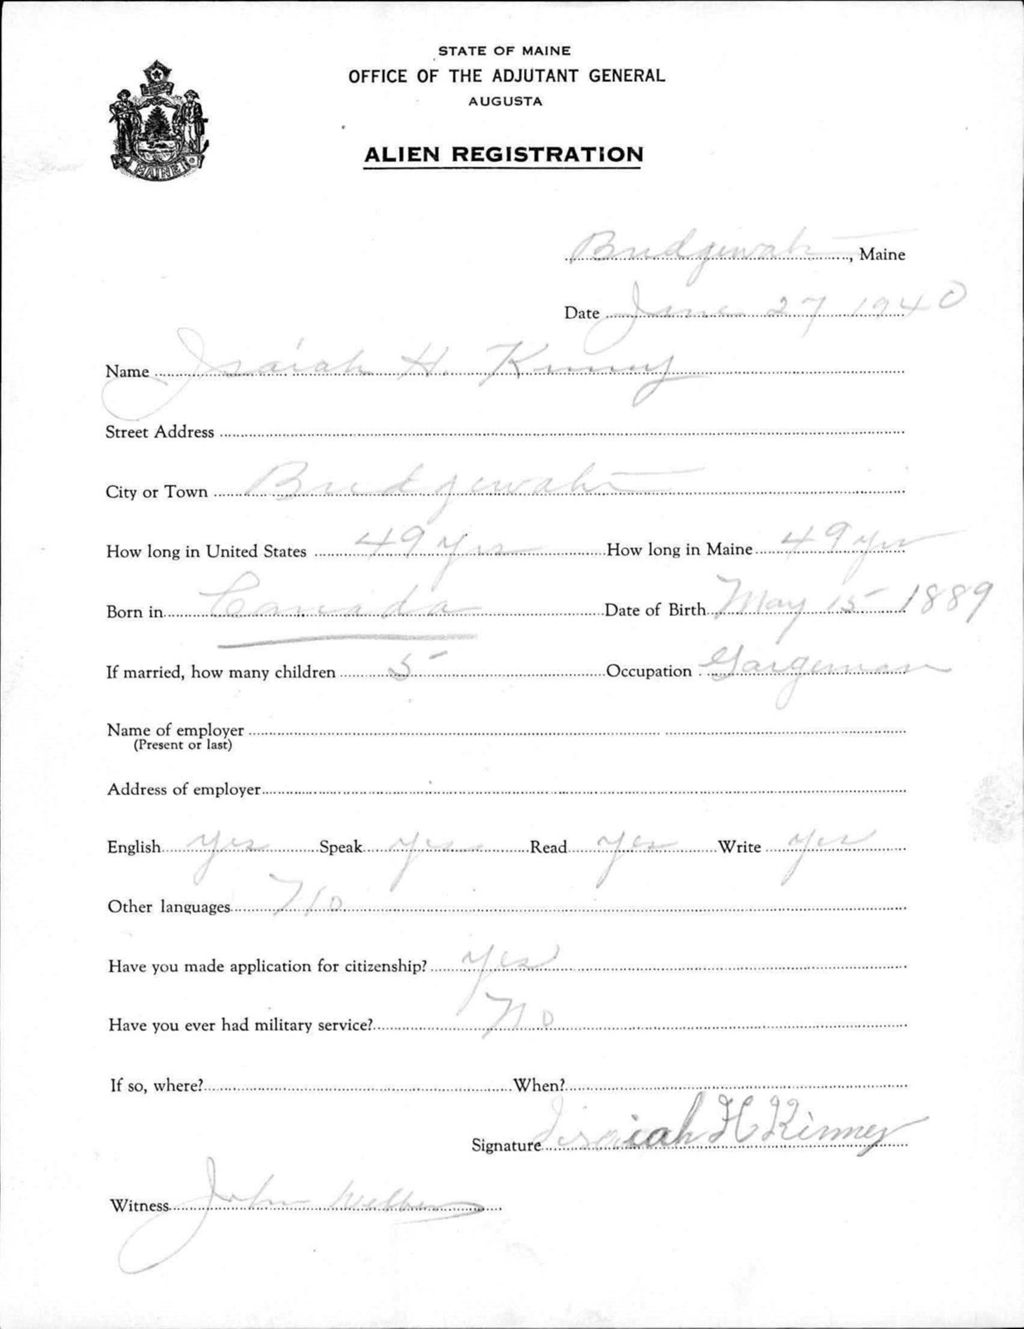 STATE OF MAINE
OFFICE OF THE ADJUTANT GENERAL
AUGUSTA
MAINE
ALIEN REGISTRATION
Bridgewater, Maine
Date June 27 1940
Name Isaiah H. Kinney
Street Address
City or Town Bridgewater
How long in United States 49 yrs How long in Maine 49 yrs
Born in Canada Date of Birth May 15 1889
If married, how many children 5 Occupation
Name of employer
(Present or last)
Address of employer
English yes Speak yes Read yes Write yes
Other languages No
Have you made application for citizenship? yes
Have you ever had military service? No
If so, where? When?
Signature Isaiah H Kinney
Witness John